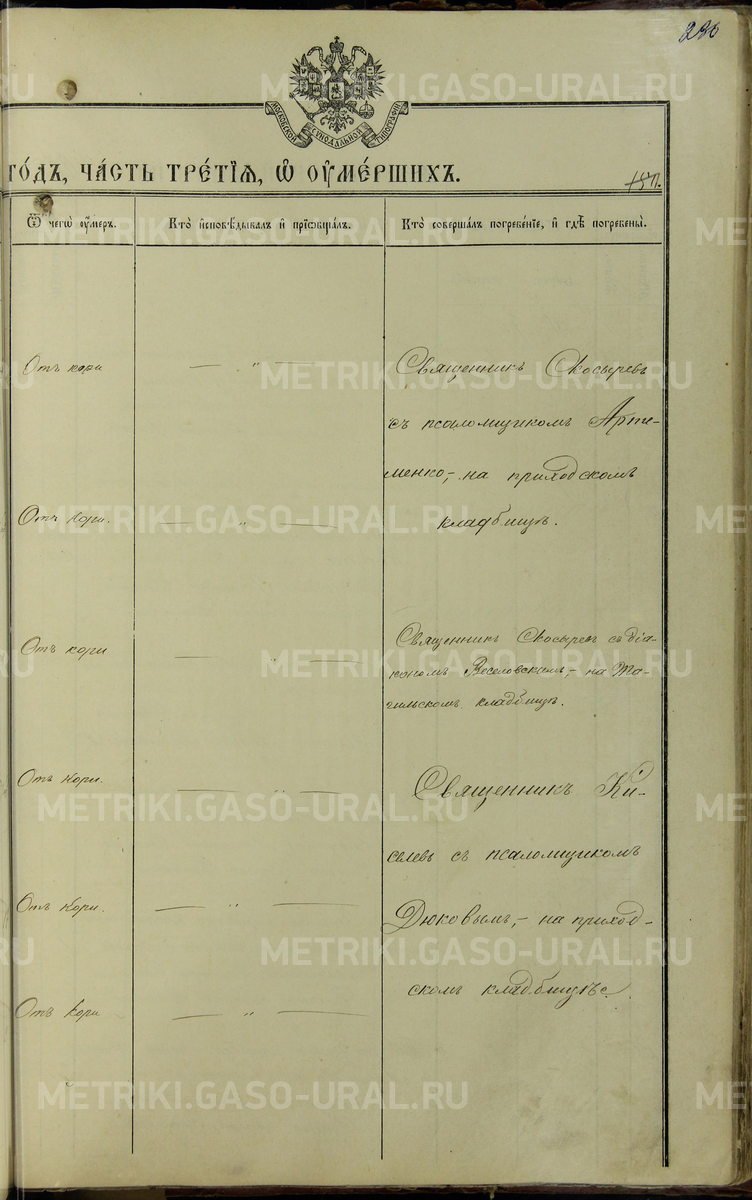 226
МОСКОВСКОЙ СѴНОДАЛЬНОЙ ТИПОГРАФІИ
ГО́ДЪ, ЧА́СТЬ ТРЕ́ТІѦ, Ѡ҆ ОУ҆МЕ́РШИХЪ.
Ѿ чегѡ̀ оу҆́меръ. Кто̀ и҆сповѣ́дывалъ и҆ прїѡбща́лъ. Кто̀ соверша́лъ погребе́нїе, и҆ гдѣ̀ погребены̀.
Отъ кори — „ — Священникъ Скосыревъ
съ псаломщикомъ Арте-
менко,- на приходскомъ
Отъ кори. — „ — кладбищѣ.
Отъ кори — „ — Священникъ Скосыревъ съ діа-
кономъ Веселовскимъ,- на Та-
гильскомъ кладбищѣ.
Отъ кори. — „ — Священникъ Ки-
селевъ съ псаломщикомъ
Отъ кори. — „ — Дюковымъ,- на приход-
скомъ кладбищѣ.
Отъ кори — „ —
METRIKI.GASO-URAL.RU